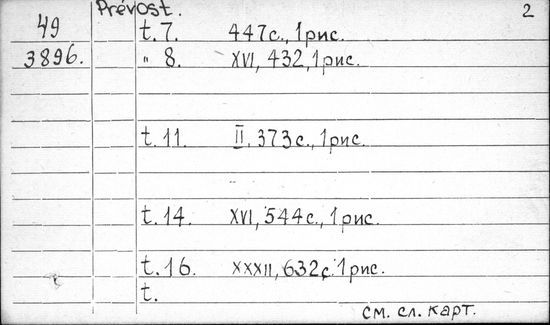 Prévost. 2
49 t. 7. 447 с., 1 рис.
3896. " 8. XVI, 432, 1 рис.
t. 11. II, 373 с., 1 рис.
t. 14. XVI, 544 с., 1 рис.
t. 16. XXXII, 632 с. 1 рис.
t.
см. сл. карт.